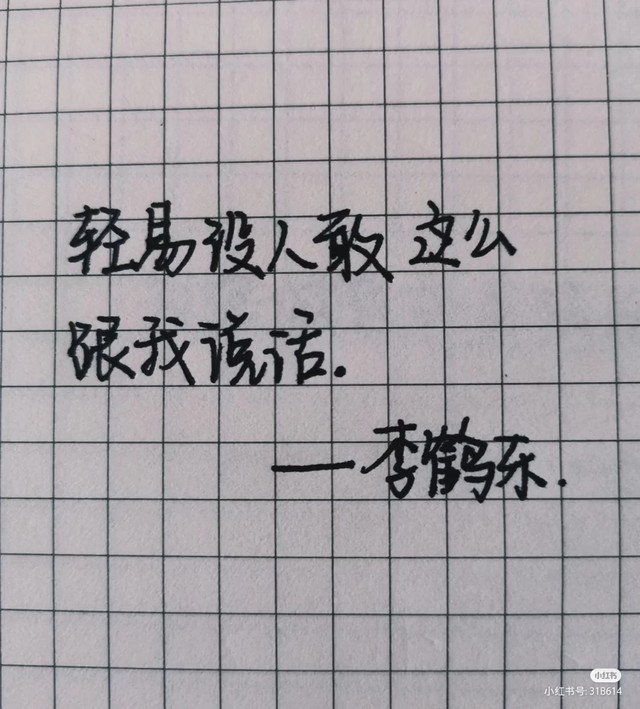 轻易没人敢这么
跟我说话.
—李鹤东.
小红书
小红书号:318614